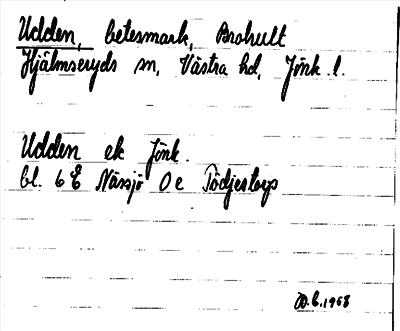 Udden, betesmark, Brohult
Hjälmseryds sn, Västra hd, Jönk. l.
Udden ek Jönk.
bl. 6 E Nässjö 0 c
1968